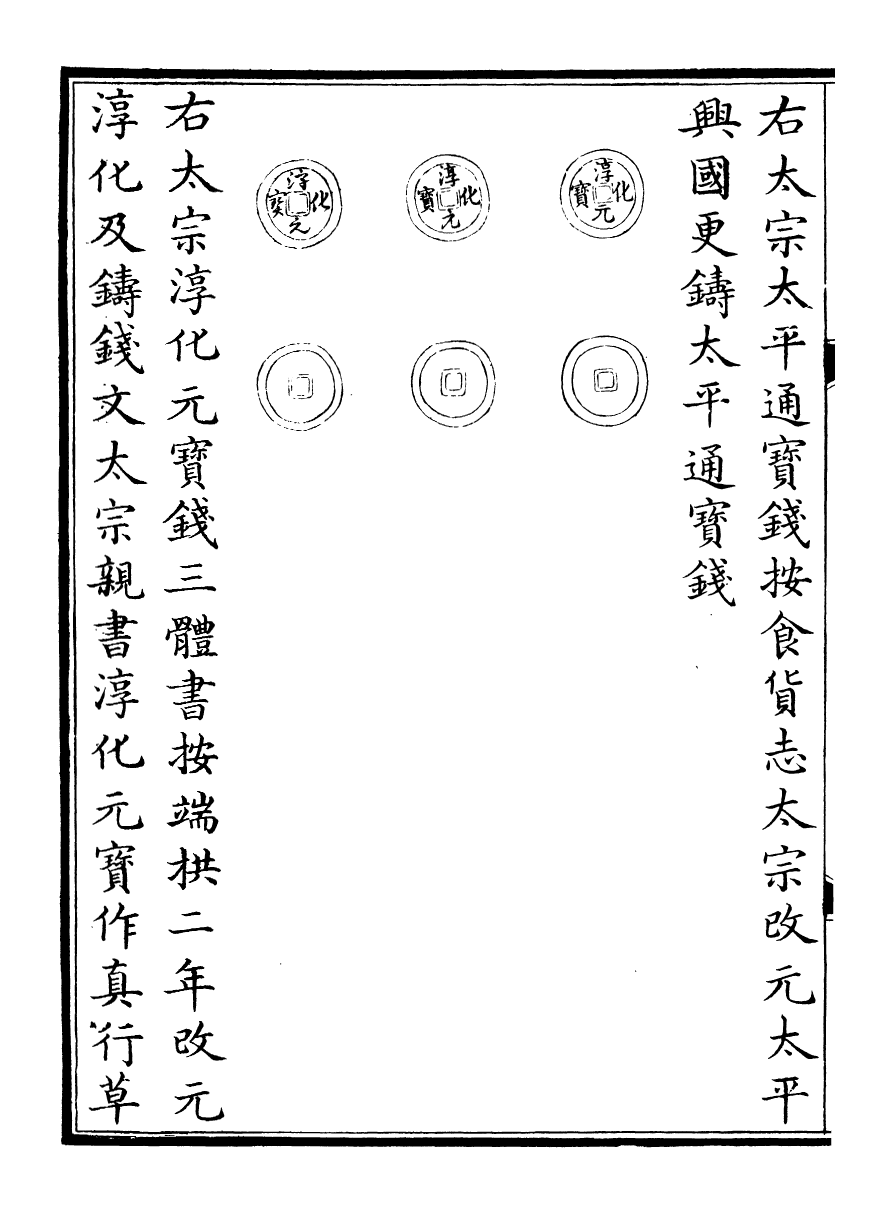 右太宗太平通寶錢按食貨志太宗改元太平
興國更鑄太平通寶錢
淳化元寶
淳化元寶
淳化元寶
右太宗淳化元寶錢三體書按端栱二年改元
淳化及鑄錢文太宗親書淳化元寶作真行草